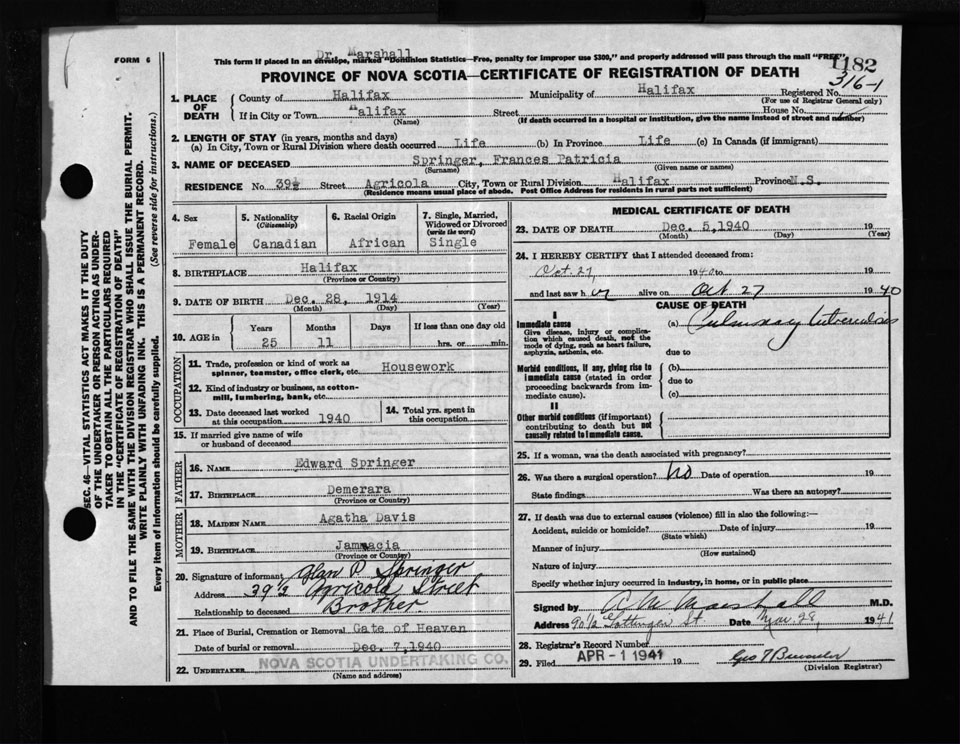 Dr. Marshall
FORM 6
This form if placed in an envelope, marked "Dominion Statistics—Free, penalty for improper use $300," and properly addressed will pass through the mail "FREE"
1182
PROVINCE OF NOVA SCOTIA—CERTIFICATE OF REGISTRATION OF DEATH
316-1
1. PLACE OF DEATH
County of Halifax Municipality of Halifax Registered No.
(For use of Registrar General only)
If in City or Town Halifax Street House No.
(Name) (If death occurred in a hospital or institution, give the name instead of street and number)
2. LENGTH OF STAY (in years, months and days)
(a) In City, Town or Rural Division where death occurred Life (b) In Province Life (c) In Canada (if immigrant)
3. NAME OF DECEASED Springer, Frances Patricia
(Surname) (Given name or names)
RESIDENCE No. 39½ Street Agricola City, Town or Rural Division Halifax Province N.S.
(Residence means usual place of abode. Post Office Address for residents in rural parts not sufficient)
4. Sex
Female
5. Nationality
(Citizenship)
Canadian
6. Racial Origin
African
7. Single, Married, Widowed or Divorced
(write the word)
Single
8. BIRTHPLACE Halifax
(Province or Country)
9. DATE OF BIRTH Dec. 28, 1914
(Month) (Day) (Year)
10. AGE in
Years Months Days If less than one day old
25 11 hrs. or min.
OCCUPATION
11. Trade, profession or kind of work as Housework
spinner, teamster, office clerk, etc.
12. Kind of industry or business, as cotton-
mill, lumbering, bank, etc.
13. Date deceased last worked
at this occupation 1940
14. Total yrs. spent in
this occupation
15. If married give name of wife
or husband of deceased
FATHER
16. NAME Edward Springer
17. BIRTHPLACE Demerara
(Province or Country)
MOTHER
18. MAIDEN NAME Agatha Davis
19. BIRTHPLACE Jammacia
(Province or Country)
20. Signature of informant Alan P. Springer
Address 39½ Agricola Street
Relationship to deceased Brother
21. Place of Burial, Cremation or Removal Gate of Heaven
Date of burial or removal Dec. 7, 1940
22. UNDERTAKER NOVA SCOTIA UNDERTAKING CO.
(Name and address)
MEDICAL CERTIFICATE OF DEATH
23. DATE OF DEATH Dec. 5, 1940 19
(Month) (Day) (Year)
24. I HEREBY CERTIFY that I attended deceased from:
Oct. 27 1940 to 19
and last saw her alive on Oct 27 1940
CAUSE OF DEATH
I
Immediate cause
Give disease, injury or complication which caused death, not the mode of dying, such as heart failure, asphyxia, asthenia, etc.
(a) Pulmonary tuberculosis
due to
Morbid conditions, if any, giving rise to immediate cause (stated in order proceeding backwards from immediate cause).
(b)
due to
(c)
II
Other morbid conditions (if important) contributing to death but not causally related to immediate cause.
25. If a woman, was the death associated with pregnancy?
26. Was there a surgical operation? No Date of operation 19
State findings Was there an autopsy?
27. If death was due to external causes (violence) fill in also the following:—
Accident, suicide or homicide? Date of injury 19
(State which)
Manner of injury
(How sustained)
Nature of injury
Specify whether injury occurred in industry, in home, or in public place
Signed by A M Marshall M.D.
Address 90½ Gottingen St. Date Mar. 28, 1941
28. Registrar's Record Number
29. Filed APR - 1 1941 19
(Division Registrar)
SEC. 46—VITAL STATISTICS ACT MAKES IT THE DUTY
OF THE UNDERTAKER OR PERSON ACTING AS UNDER-
TAKER TO OBTAIN ALL THE PARTICULARS REQUIRED
IN THE "CERTIFICATE OF REGISTRATION OF DEATH"
AND TO FILE THE SAME WITH THE DIVISION REGISTRAR WHO SHALL ISSUE THE BURIAL PERMIT.
WRITE PLAINLY WITH UNFADING INK. THIS IS A PERMANENT RECORD.
Every item of Information should be carefully supplied. (See reverse side for instructions.)